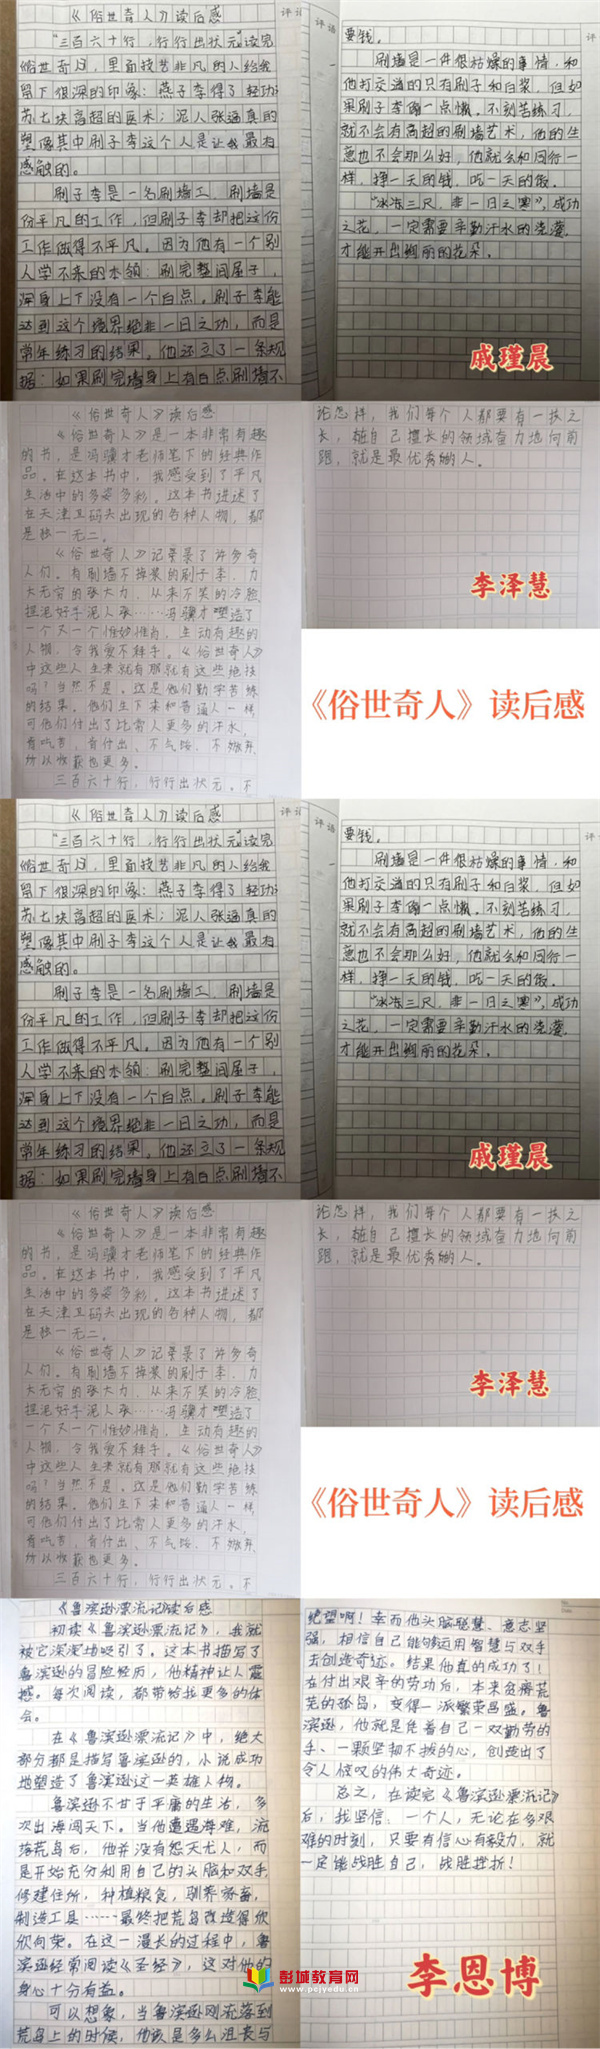 《俗世奇人》读后感
评语
"三百六十行,行行出状元"读完
俗世奇人,里面技艺非凡的人给我
留下很深的印象:燕子李得了轻功;
苏七块高超的医术;泥人张逼真的
塑像其中刷子李这个人是让我最有
感触的。
刷子李是一名刷墙工,刷墙是
份平凡的工作,但刷子李却把这份
工作做得不平凡。因为他有一个别
人学不来的本领:刷完整间屋子,
浑身上下没有一个白点。刷子李能
达到这个境界绝非一日之功,而是
常年练习的结果。他还立了一条规
据:如果刷完墙身上有白点刷墙不
评语
要钱。
刷墙是一件很枯燥的事情,和
他打交道的只有刷子和白浆,但如
果刷子李偷一点懒。不刻苦练习,
就不会有高超的刷墙艺术,他的生
意也不会那么好,他就会和同行一
样,挣一天的钱,吃一天的饭。
"冰冻三尺,非一日之寒",成功
之花,一定需要辛勤汗水的浇灌,
才能开出绚丽的花朵。
戚瑾晨
《俗世奇人》读后感
《俗世奇人》是一本非常有趣
的书,是冯骥才老师笔下的经典作
品。在这本书中,我感受到了平凡
生活中的多姿多彩。这本书讲述了
在天津卫码头出现的各种人物,都
是独一无二。
《俗世奇人》记录了许多奇
人们。有刷墙不掉浆的刷子李,力
大无穷的张大力,从来不笑的冷脸,
捏泥好手泥人张……冯骥才塑造了
一个又一个惟妙惟肖,生动有趣的
人物,令我爱不释手。《俗世奇人》
中这些人生来就有那就有这些绝技
吗?当然不是。这是他们勤学苦练
的结果。他们生下来和普通人一样,
可他们付出了比常人更多的汗水,
肯吃苦,肯付出、不气馁、不放弃,
所以收获也更多。
三百六十行,行行出状元。不
论怎样,我们每个人都要有一技之
长,在自己擅长的领域奋力地向前
跑,就是最优秀的人。
李泽慧
《俗世奇人》读后感
《俗世奇人》读后感
评语
"三百六十行,行行出状元"读完
俗世奇人,里面技艺非凡的人给我
留下很深的印象:燕子李得了轻功;
苏七块高超的医术;泥人张逼真的
塑像其中刷子李这个人是让我最有
感触的。
刷子李是一名刷墙工,刷墙是
份平凡的工作,但刷子李却把这份
工作做得不平凡。因为他有一个别
人学不来的本领:刷完整间屋子,
浑身上下没有一个白点。刷子李能
达到这个境界绝非一日之功,而是
常年练习的结果。他还立了一条规
据:如果刷完墙身上有白点刷墙不
评语
要钱。
刷墙是一件很枯燥的事情,和
他打交道的只有刷子和白浆,但如
果刷子李偷一点懒。不刻苦练习,
就不会有高超的刷墙艺术,他的生
意也不会那么好,他就会和同行一
样,挣一天的钱,吃一天的饭。
"冰冻三尺,非一日之寒",成功
之花,一定需要辛勤汗水的浇灌,
才能开出绚丽的花朵。
戚瑾晨
《俗世奇人》读后感
《俗世奇人》是一本非常有趣
的书,是冯骥才老师笔下的经典作
品。在这本书中,我感受到了平凡
生活中的多姿多彩。这本书讲述了
在天津卫码头出现的各种人物,都
是独一无二。
《俗世奇人》记录了许多奇
人们。有刷墙不掉浆的刷子李,力
大无穷的张大力,从来不笑的冷脸,
捏泥好手泥人张……冯骥才塑造了
一个又一个惟妙惟肖,生动有趣的
人物,令我爱不释手。《俗世奇人》
中这些人生来就有那就有这些绝技
吗?当然不是。这是他们勤学苦练
的结果。他们生下来和普通人一样,
可他们付出了比常人更多的汗水,
肯吃苦,肯付出、不气馁、不放弃,
所以收获也更多。
三百六十行,行行出状元。不
论怎样,我们每个人都要有一技之
长,在自己擅长的领域奋力地向前
跑,就是最优秀的人。
李泽慧
《俗世奇人》读后感
《鲁滨逊漂流记》读后感
初读《鲁滨逊漂流记》,我就
被它深深地吸引了。这本书描写了
鲁滨逊的冒险经历,他精神让人震
撼。每次阅读,都带给我更多的体
会。
在《鲁滨逊漂流记》中,绝大
部分都是描写鲁滨逊的,小说成功
地塑造了鲁滨逊这一英雄人物。
鲁滨逊不甘于平庸的生活,多
次出海闯天下。当他遭遇海难,流
落荒岛后,他并没有怨天尤人,而
是开始充分利用自己的头脑和双手,
修建住所,种植粮食,驯养家畜,
制造工具……最终把荒岛改造得欣
欣向荣。在这一漫长的过程中,鲁
滨逊经常阅读《圣经》,这对他的
身心十分有益。
可以想象,当鲁滨逊刚流落到
荒岛上的时候,他该是多么沮丧与
绝望啊!幸而他头脑聪慧、意志坚
强,相信自己能够运用智慧与双手
去创造奇迹。结果他真的成功了!
在付出艰辛的劳动后,本来贫瘠荒
芜的孤岛,变得一派繁荣昌盛。鲁
滨逊,他就是凭着自己一双勤劳的
手、一颗坚韧不拔的心,创造出了
令人惊叹的伟大奇迹。
总之,在读完《鲁滨逊漂流记》
后,我坚信:一个人,无论在多艰
难的时刻,只要有信心有毅力,就
一定能战胜自己,战胜挫折!
李恩博
彭城教育网
www.pcjyedu.cn